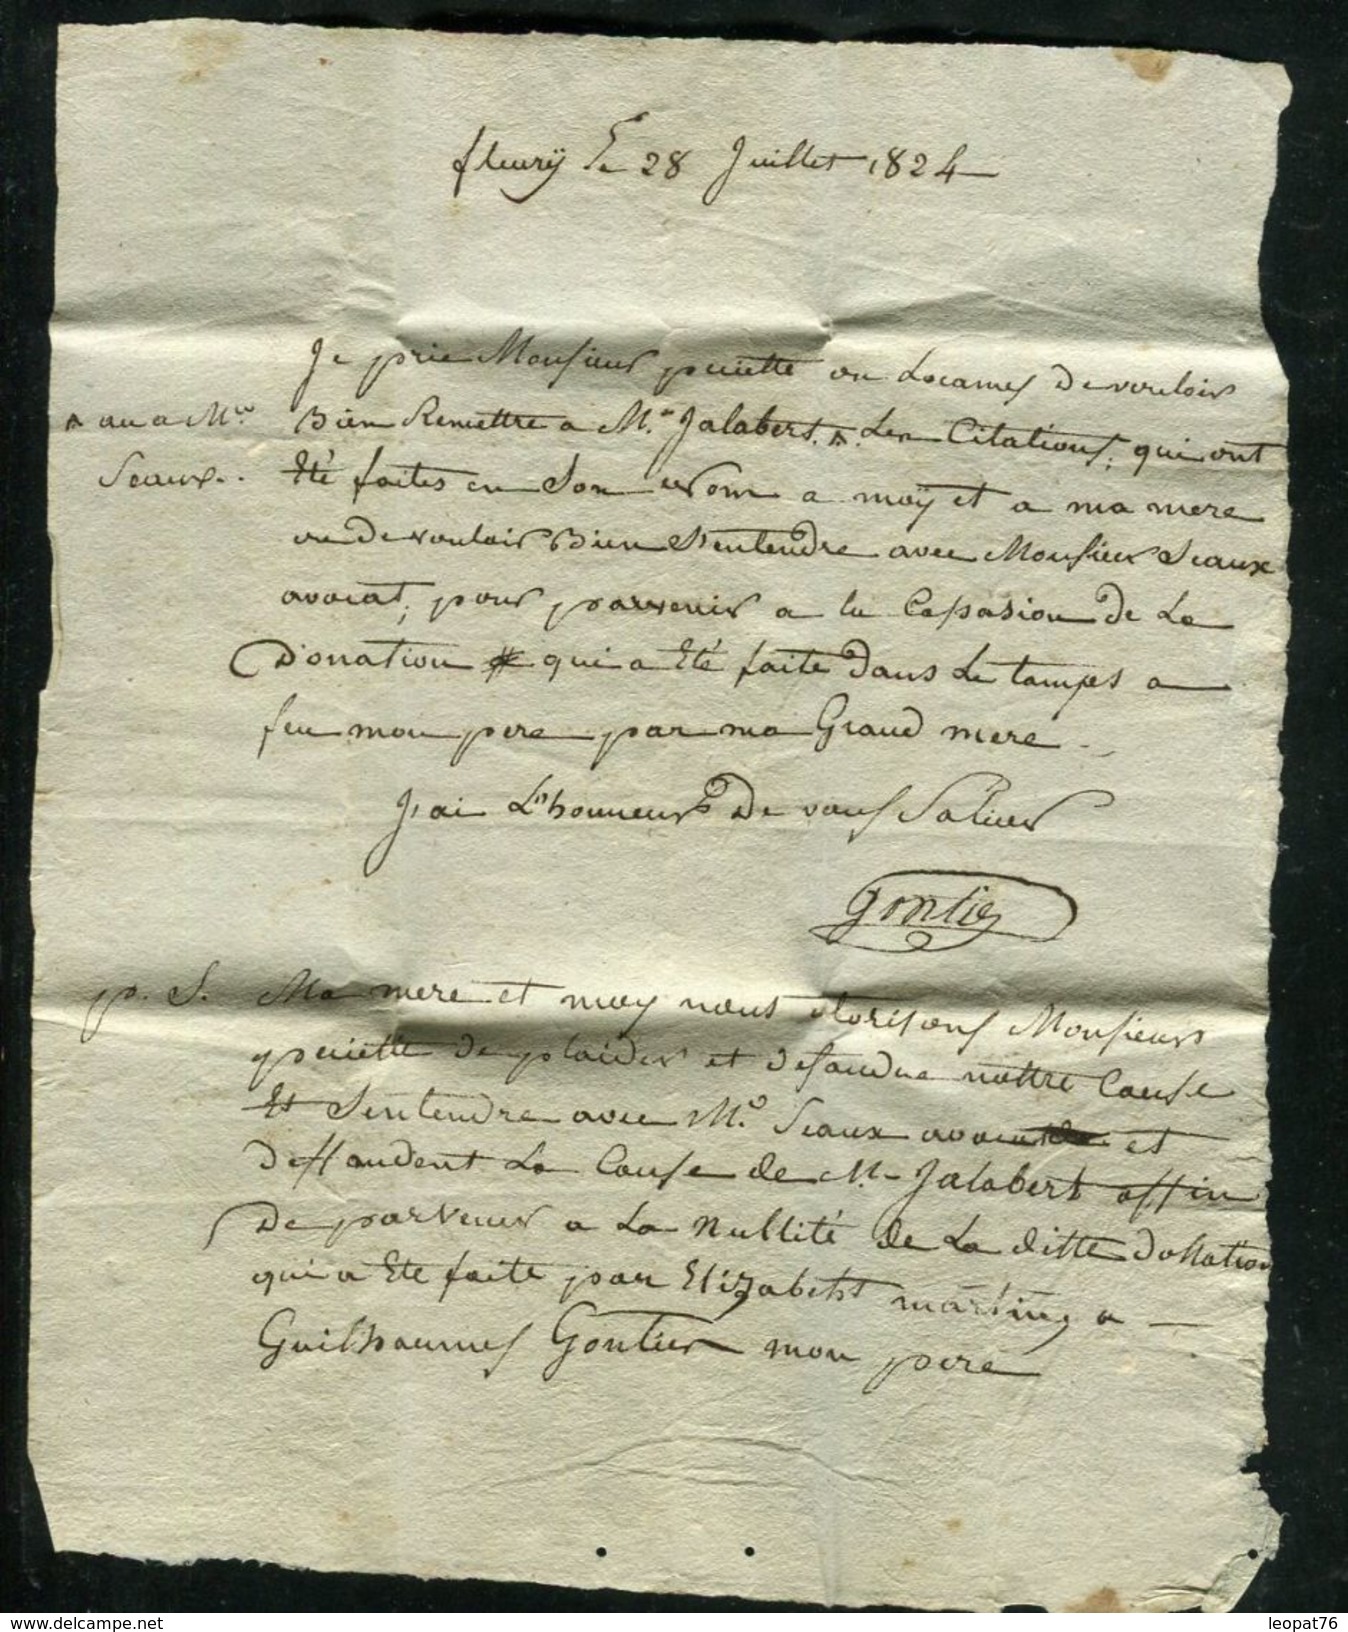 fleurÿ le 28 Juillet 1824
Je prie Monsieur peiiette ou de vouloir
Bien Remettre a Mr. Jalabert. ^. Les Citations, qui ont
^ ou a Mr. Seaux..
Eté faites en Son nom a moÿ et a ma mere
ou de vouloir Bien S'entendre avec Monsieur Seaux
avocat, pour parvenir a la Capasion de La
Donation qui a Eté faite dans Le tamps a
feu mon pere par ma Grand mere
J'ai L'honneur De vous Saluer
gontier
p. S. Ma mere et moy nous otorisons Monsieur
peiiette de plaider et defandre nottre Cause
Et Sentendre avec Mr. Seaux avocat et
deffandent La Cause de Mr. Jalabert affin
De parvenir a La Nullité de La ditte Donation
qui a Eté faite par Elizabeht martin, a
Guilhaumes Gontier mon pere
leopat76
www.delcampe.net